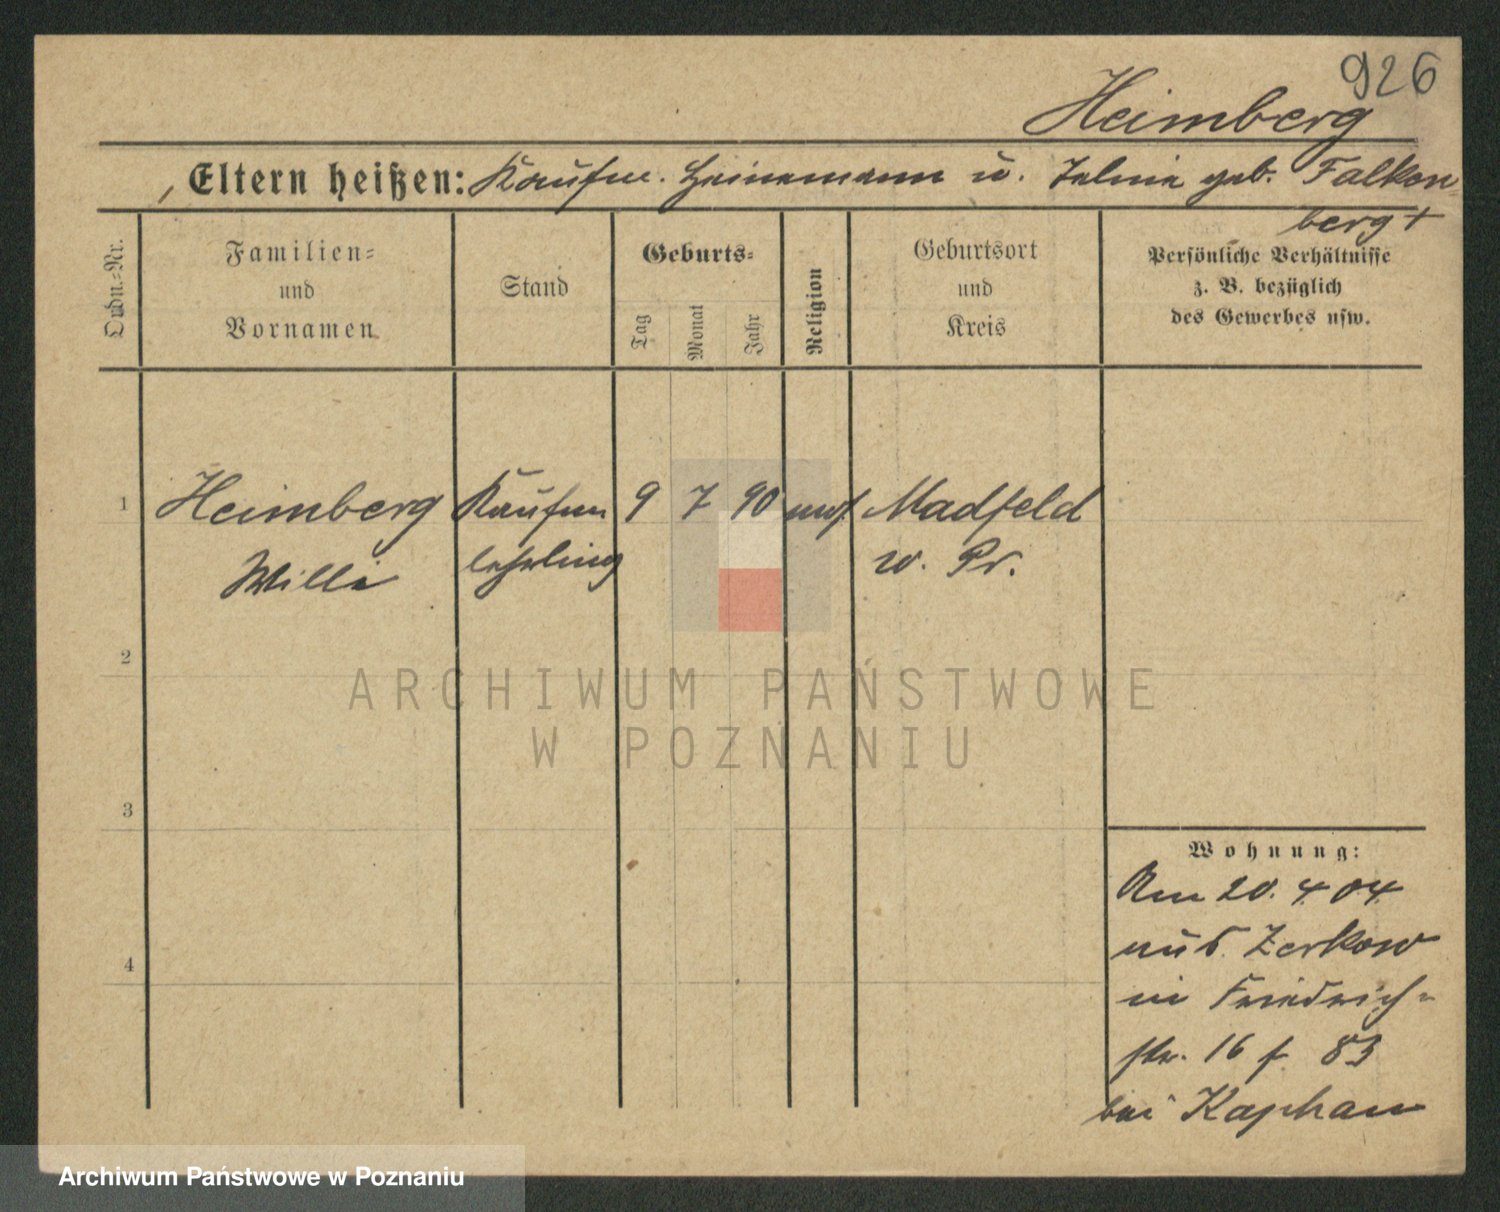 926
Heimberg
Eltern heißen: Kaufm. Heinemann u. Jelnie geb. Falken=
berg +
Ordn.=Nr.
Familien=
und
Vornamen
Stand
Geburts=
Tag
Monat
Jahr
Religion
Geburtsort
und
Kreis
Persönliche Verhältnisse
z. B. bezüglich
des Gewerbes usw.
1 Heimberg Kaufm 9 7 90 mos. Madfeld
Willi lehrling w. Pr.
2
3
4
Wohnung:
Am 20. 4. 04
aus Zerkow
in Friedrich=
str. 16 f. 83
bei Kaphan
ARCHIWUM PAŃSTWOWE
W POZNANIU
Archiwum Państwowe w Poznaniu